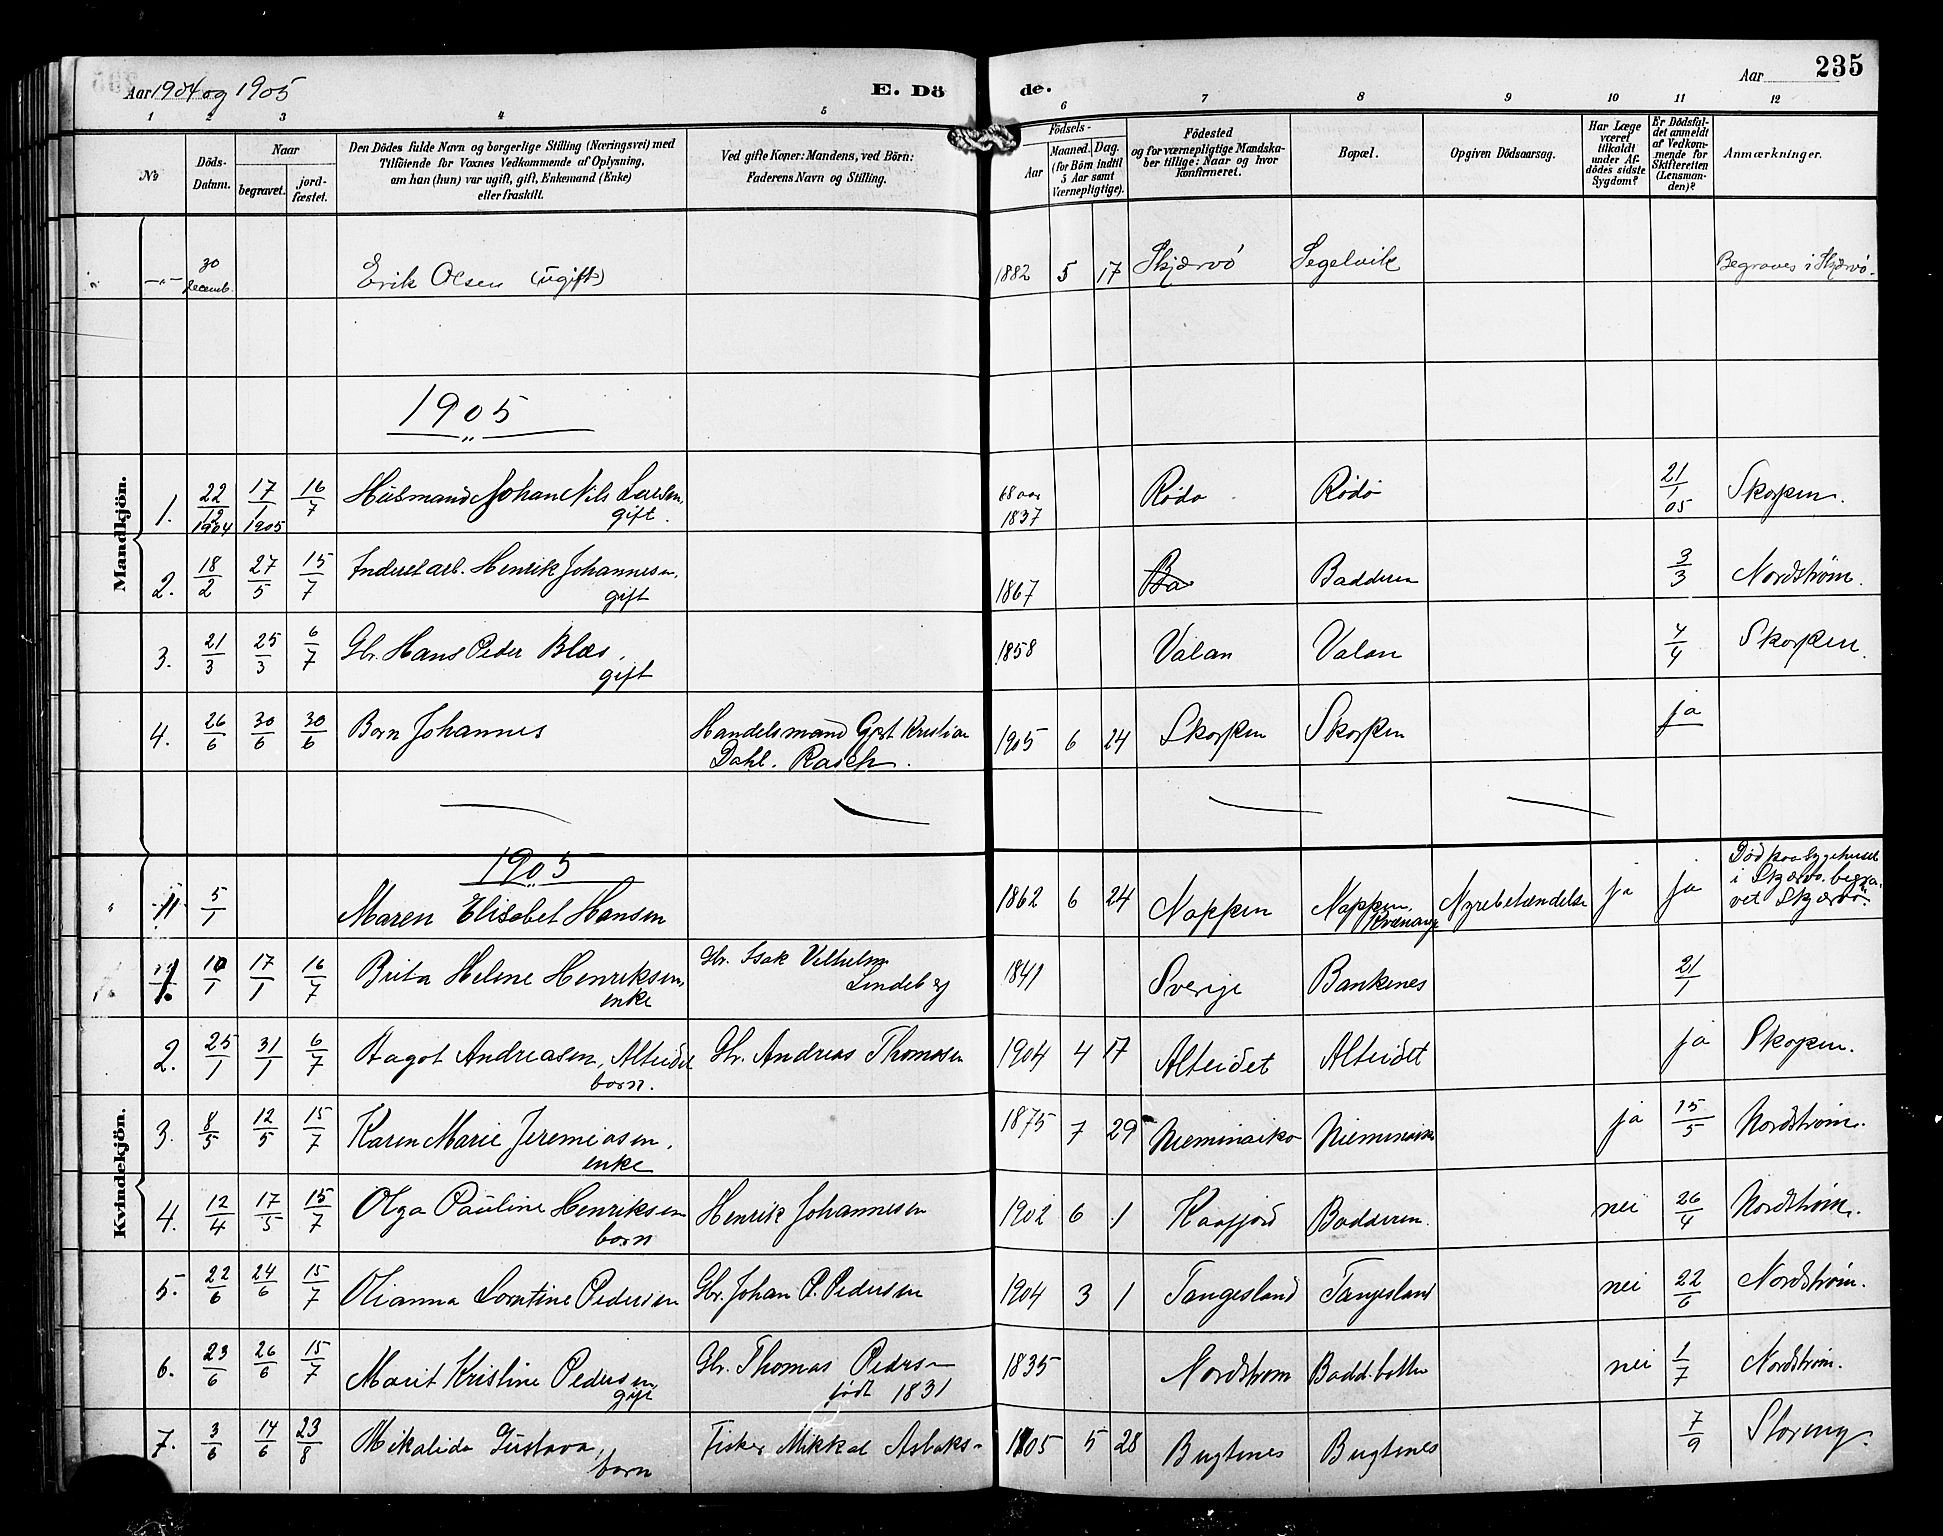 Aar 1904 og 1905
E. Dö
de.
Aar
235
1 2 3 4 5 6 7 8 9 10 11 12
No
Döds-
Datum.
Naar
begravet.
jord-
fæstet.
Den Dödes fulde Navn og borgerlige Stilling (Næringsvei) med
Tilföiende for Voxnes Vedkommende af Oplysning,
om han (hun) var ugift, gift, Enkemand (Enke)
eller fraskilt.
Ved gifte Koner: Mandens, ved Börn:
Faderens Navn og Stilling.
Födsels-
Aar
Maaned. Dag.
(for Börn indtil
5 Aar samt
Værnepligtige).
Födested
og for værnepligtige Mandska-
ber tillige: Naar og hvor
Konfirmeret.
Bopæl.
Opgiven Dödsaarsag.
Har Læge
været
tilkaldt
under Af-
dödes sidste
Sygdom?
Er Dödsfal-
det anmeldt
af Vedkom-
mende for
Skifteretten
(Lensman-
den)?
Anmærkninger.
30 decemb. Erik Olsen (ugift) 1882 5 17 Skjærvö Segelvik Begraves i Skjærvö.
1905
Mandkjön.
1. 22/12 1904 17/1 1905 16/7 Husmand Johan Nils Larsen, gift. 68 aar 1837 Rödö Rödö 21/1 05 Skorpen.
2. 18/2 27/5 15/7 Henrik Johannesen, gift 1867 Ba Badderen 3/3 Nordström.
3. 21/3 25/3 6/7 Gbr. Hans Peder Blæs, gift 1858 Valan Valan 4/4 Skorpen.
4. 26/6 30/6 30/6 Barn Johannes Handelsmand Gert Kristian 1905 6 24 Skorpen Skorpen ja
Dahl. Rasch.
1905
5/1 Maren Elisabet Hansen 1862 6 24 Nappen Nappen, Kvænang Nyrebetændelse ja ja Död paa sygehuset
i Skjærvö. begra-
vet Skjærvö.
Kvindekjön.
1. 10/1 17/1 16/7 Brita Helene Henriksen, enke Gbr. Isak Vilhelm Lindeberg 1841 Sverige Bankenes 21/1
2. 25/1 31/1 6/7 Dagot Andreasen, Alteidet barn. Gbr. Andreas Thomasen 1904 4 17 Alteidet Alteidet ja Skorpen.
3. 8/5 12/5 15/7 Karen Marie Jeremiasen, enke 1875 7 29 Nieminaiko Nieminaiko ja 15/5 Nordström.
4. 12/4 17/5 15/7 Olga Pauline Henriksen barn Henrik Johannesen 1902 6 1 Kaafjord Badderen. nei 26/4 Nordström.
5. 22/6 24/6 15/7 Olianna Lorntine Pedersen Gbr. Johan P. Pedersen 1904 3 1 Tangesland Tangesland nei 22/6 Nordström.
6. 23/6 26/6 15/7 Marit Kristine Pedersen gift Gbr. Thomas Peders- födt 1831 1835 Nordström Badd.botten nei 1/7 Nordström.
7. 3/6 14/6 23/8 Mikalida Gustava, barn Fisker Mikkal Aslaks- 1905 5 28 Bugtenes Bugtenes 7/9 Storeng.